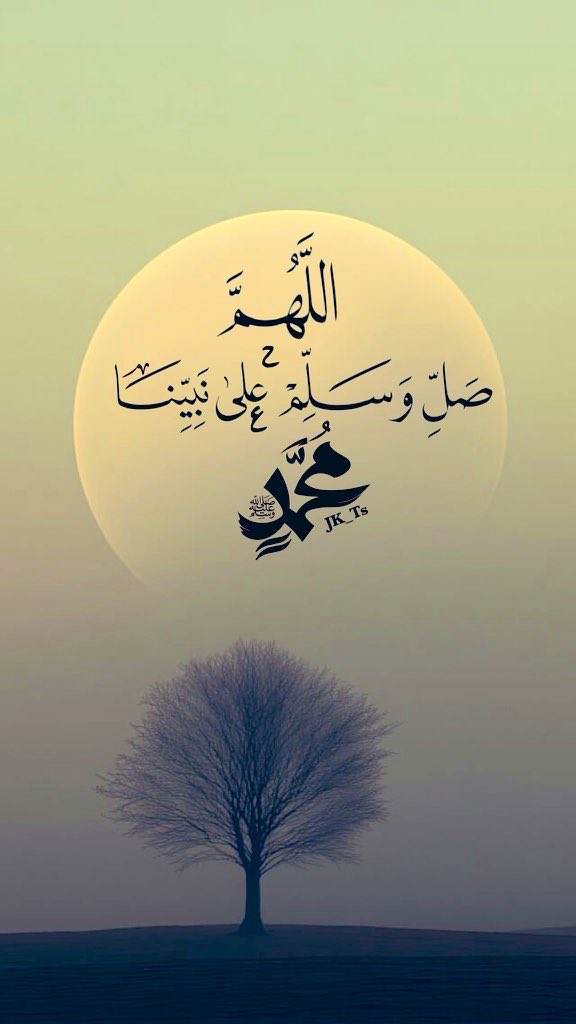 اللَّهُمَّ
صَلِّ وَسَلِّمْ على نَبِيِّنَا
مُحَمَّدٍ
صلى الله عليه وسلم
JK_Ts